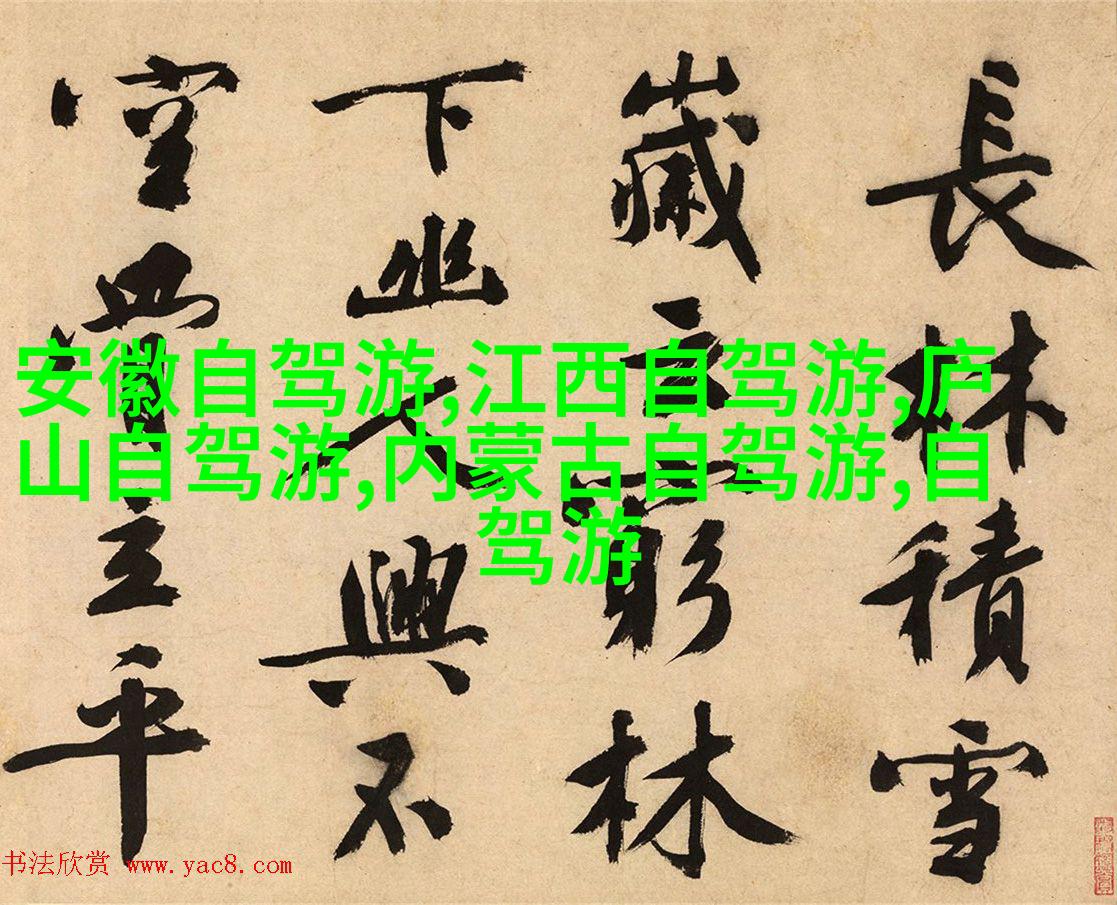 長林積雪
歲云窮林
下幽人興不
空立平
安徽自驾游,江西自驾游,庐
山自驾游,内蒙古自驾游,自
驾游
书法欣赏 www.yac8.com